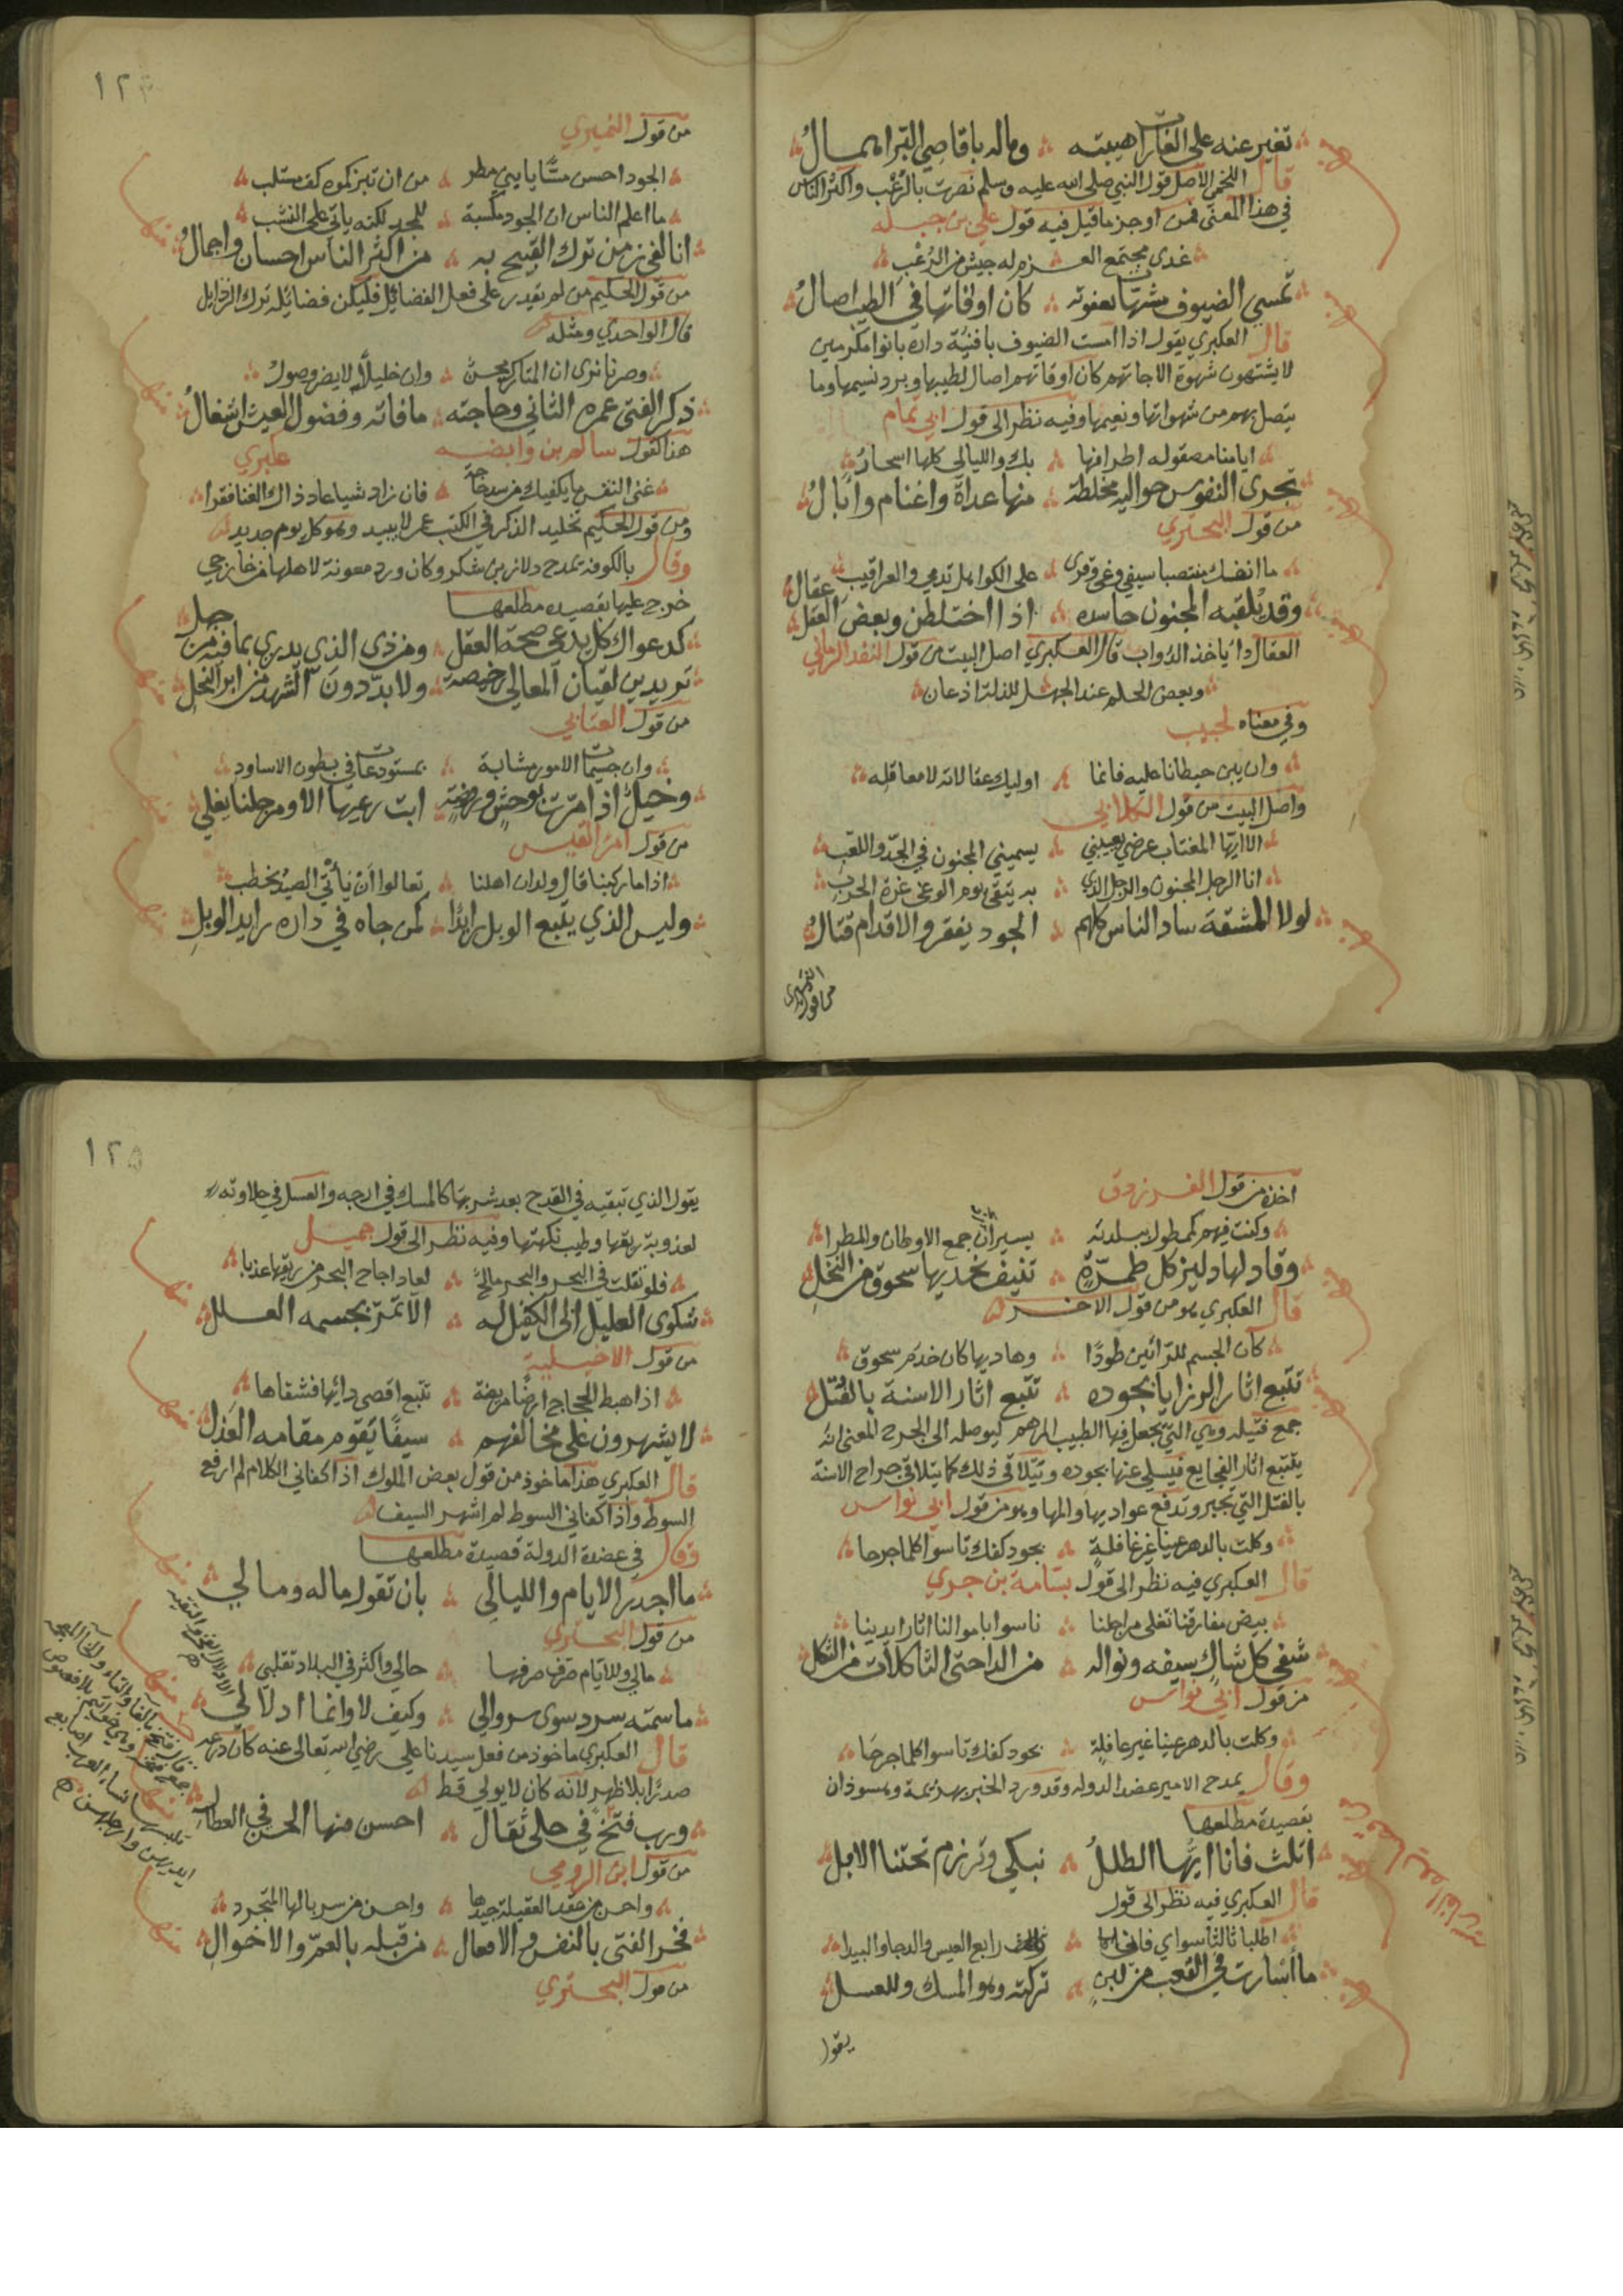 تغير عنه على الغارات هيبته وماله باقاصي البر اهمال
قال اللخمي الاصل قول النبي صلى الله عليه وسلم نصرت بالرعب واكثر الناس
في هذا المعنى فمن اوجز ما قيل فيه قول علي بن جبله
غدى مجتمع العزم له جيش من الرعب
تمسي الضيوف مشهاة بعفوته كان اوقاتها في الطيب اصال
قال العكبري يقول اذا امست الضيوف بافنية داره باتوا مكرمين
لا يشتهون شهوة الا جاتهم كان اوقاتهم اصال لطيبها وبرد نسيمها وما
يتصل بهم من شهواتها ونعيمها وفيه نظر الى قول ابي تمام
ايامنا مصقوله اطرافها بك والليالي كلها اسحار
تجرى النفوس حواليه مخلطة منها عداة واغنام وابال
من قول البحتري
ما انفك منتصبا سيفي وغى وقرى على الكواهل تدمي والعراقيب
وقد يلقبه المجنون حاسده اذا اختلطن وبعض العقل عقال
العقال داء ياخذ الدواب قال العكبري اصل البيت من قول الفند الزماني
وبعض الحلم عند الجهل للذلة اذعان
وفي معناه لحبيب
وان يبن حيطانا عليه فانما اوليك عقالاته لا معاقله
واصل البيت من قول الكلابي
الا ايها المغتاب عرضي يعيبني يسميني المجنون في الجد واللعب
انا الرجل المجنون والرجل الذي به يتقى يوم الوغى غرة الحرب
لولا المشقة ساد الناس كلهم الجود يفقر والاقدام قتال
من قول النميري
١٢٤
من قول النميري
الجود احسن مسا يا بني مطر من ان تبزكموه كف مستلب
ما اعلم الناس ان الجود مكسبة للمجد لكنه ياتي على النشب
انا لفي زمن ترك القبيح به من اكثر الناس احسان واجمال
من قول الحكيم من لم يقدر على فعل الفضائل فليكن فضائله ترك الرذايل
قال الواحدي ومثله
وصرنا نرى ان المتارك محسن وان خليلا لا يضر وصول
ذكر الفتى عمره الثاني وحاجته ما فاته وفضول العيش اشغال
هذا كقول سالم بن وابصه عكبري
غنى النفس ما يكفيك من سد حاجة فان زاد شيا عاد ذاك الغنا فقرا
ومن قول الحكيم تخليد الذكر في الكتب عمر لا يبيد وهو كل يوم جديد
وقال بالكوفة يمدح دلار بن شكر وكان ورد معونة لاهلها من خارجي
خرج عليها بقصيده مطلعها
كدعواك كل يدعى صحة العقل ومن ذى الذي يدري بما فيه من جهل
تريدين لقيان المعالي رخيصة ولا بد دون الشهد من ابر النحل
من قول العتابي
وان جسيمات الامور مشابة بمستودعات في بطون الاساود
وخيل اذا مرت بوحش وروضة ابت رعيها الا ومرجلنا يغلي
من قول امرء القيس
اذا ما ركبنا قال ولدان اهلنا تعالوا الى ان ياتي الصيد نحطب
وليس الذي يتبع الوبل رايدا كمن جاه في داره رايد الوبل
اخذه من قول الفرزدق
وكنت فيهم كممطول ببلدته يسير ان جمع الاوطان والمطرا
وقاد لها دلير كل طمرة تنيف بخديها سحوق من النخل
قال العكبري هو من قول الاخر
كان الجسم للرائين طودا وهاديها كان خدم سحوق
تتبع اثار الرزايا بجوده تتبع اثار الاسنة بالفتل
جمع فتيله وهي التي يجعل فيها الطبيب المرهم ليوصله الى الجرح المعنى انه
يتتبع اثار الفجايع فيسلي عنها بجوده ويتلافى ذلك كما يتلافى جراح الاسنة
بالفتل التي تجبر وتدفع عواديها والمها وهو من قول ابي نواس
وكلت بالدهر عينا غير غافلة بجود كفك تاسوا كلما جرحا
قال العكبري فيه نظر الى قول بشامة بن جري
بيض مفارقنا تغلي مراجلنا ناسوا باموالنا اثار ايدينا
شفى كل شاك سيفه ونواله من الداء حتى الثاكلات من الثكل
من قول ابي نواس
وكلت بالدهر عينا غير غافلة بجود كفك تاسوا كلما جرحا
وقال يمدح الامير عضد الدوله وقد ورد الخبر بهزيمة وهسوذان
بقصيدة مطلعها
اثلث فانا ايها الطلل نبكي وترزم تحتنا الابل
قال العكبري فيه نظر الى قول
اطلبا ثالثا سواي فاني رابع العيس والدجا والبيد
ما اسارت في القعب من لبن تركته وهو المسك والعسل
يقول
١٢٥
يقول الذي تبقيه في القدح بعد شربها كالمسك في ارجه والعسل في حلاوته
لعذوبة ريقها وطيب نكهتها وفيه نظر الى قول جميل
فلو تفلت في البحر والبحر مالح لعاد اجاج البحر من ريقها عذبا
شكوى العليل الى الكفيل له الا تمر بجسمه العلل
من قول الاخيلية
اذا هبط الحجاج ارضا مريضة تتبع اقصى دائها فشفاها
لا يشهرون على مخالفهم سيفا يقوم مقامه العذل
قال العكبري هذا ماخوذ من قول بعض الملوك اذا كفاني الكلام لم ارفع
السوط واذا كفاني السوط لم اشهر السيف
وقال في عضد الدولة قصيدة مطلعها
ما اجدر الايام والليالي بان تقول ماله ومالي
من قول البحتري
مالي وللايام صرف صرفها حالي واكثر في البلاد تقلبي
ما سمته سرد سوى سروالي وكيف لا وانما ادلالي
قال العكبري ماخوذ من فعل سيدنا علي رضي الله تعالى عنه كان درعه
صدرا بلا ظهر لانه كان لا يولي قط
ورب فتخ في حلى ثقال احسن منها الحسن في المعطال
من قول ابن الرومي
واحسن من عقد العقيلة جيدها واحسن من سربالها المتجرد
فخر الفتى بالنفس والافعال من قبله بالعم والاخوال
من قول البحتري